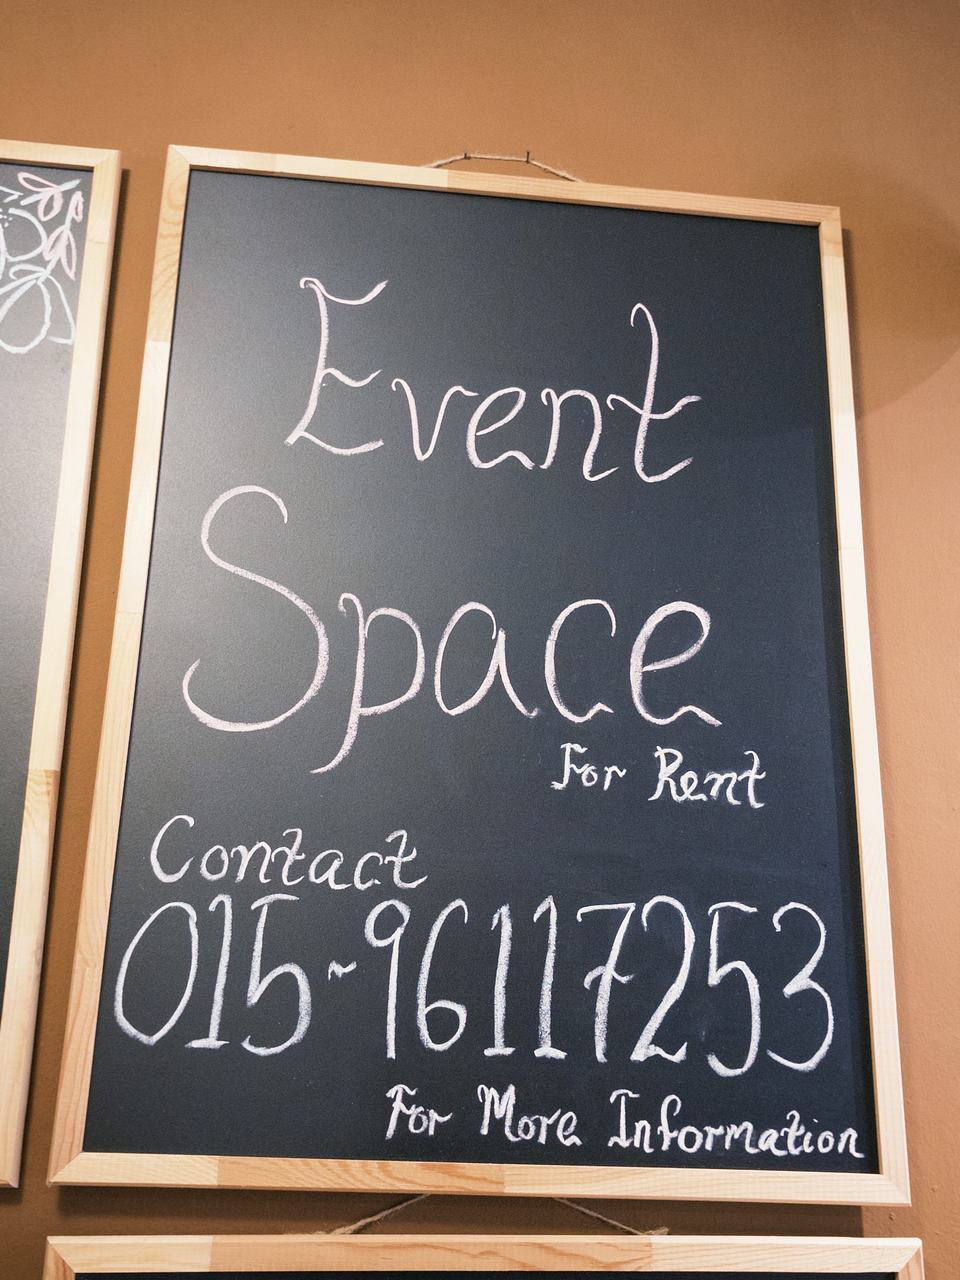 Event
Space
For Rent
Contact
015-96117253
For More Information